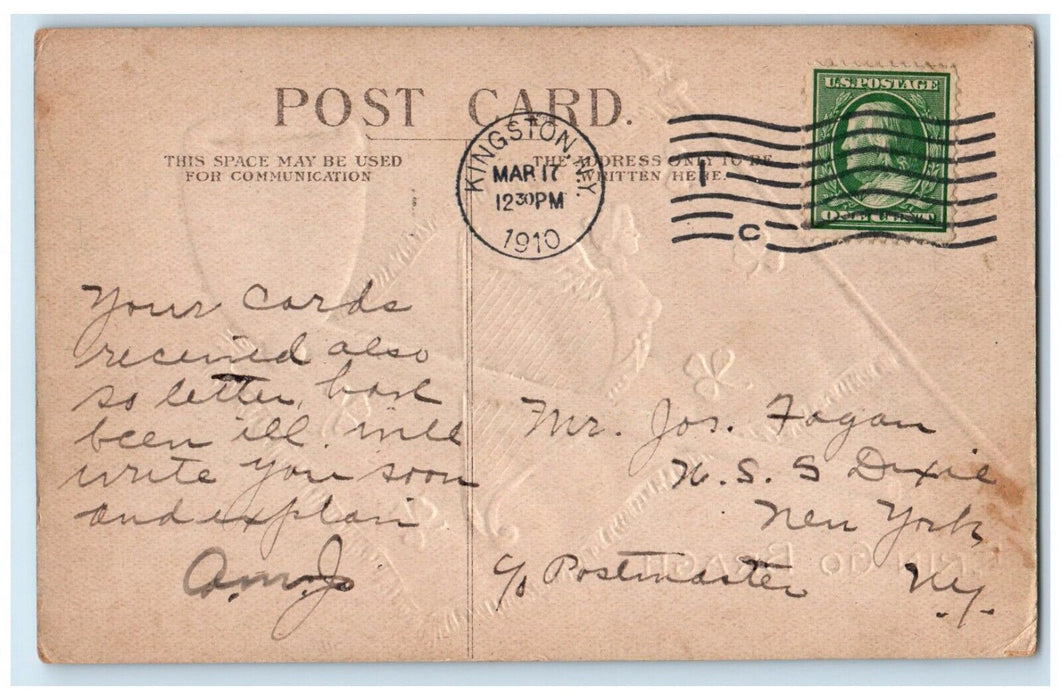 POST CARD.
THIS SPACE MAY BE USED
FOR COMMUNICATION
THE ADDRESS ONLY TO BE
WRITTEN HERE.
KINGSTON, N.Y.
MAR 17
12 30 PM
1910
1
C
U.S. POSTAGE
ONE CENT
Your cards
received also
so letter, have
been ill. will
write you soon
and explain
A.M.J.
Mr. Jos. Fagan
U.S.S Dixie
New York
c/o Postmaster N.Y.
ERIN GO BRAGH